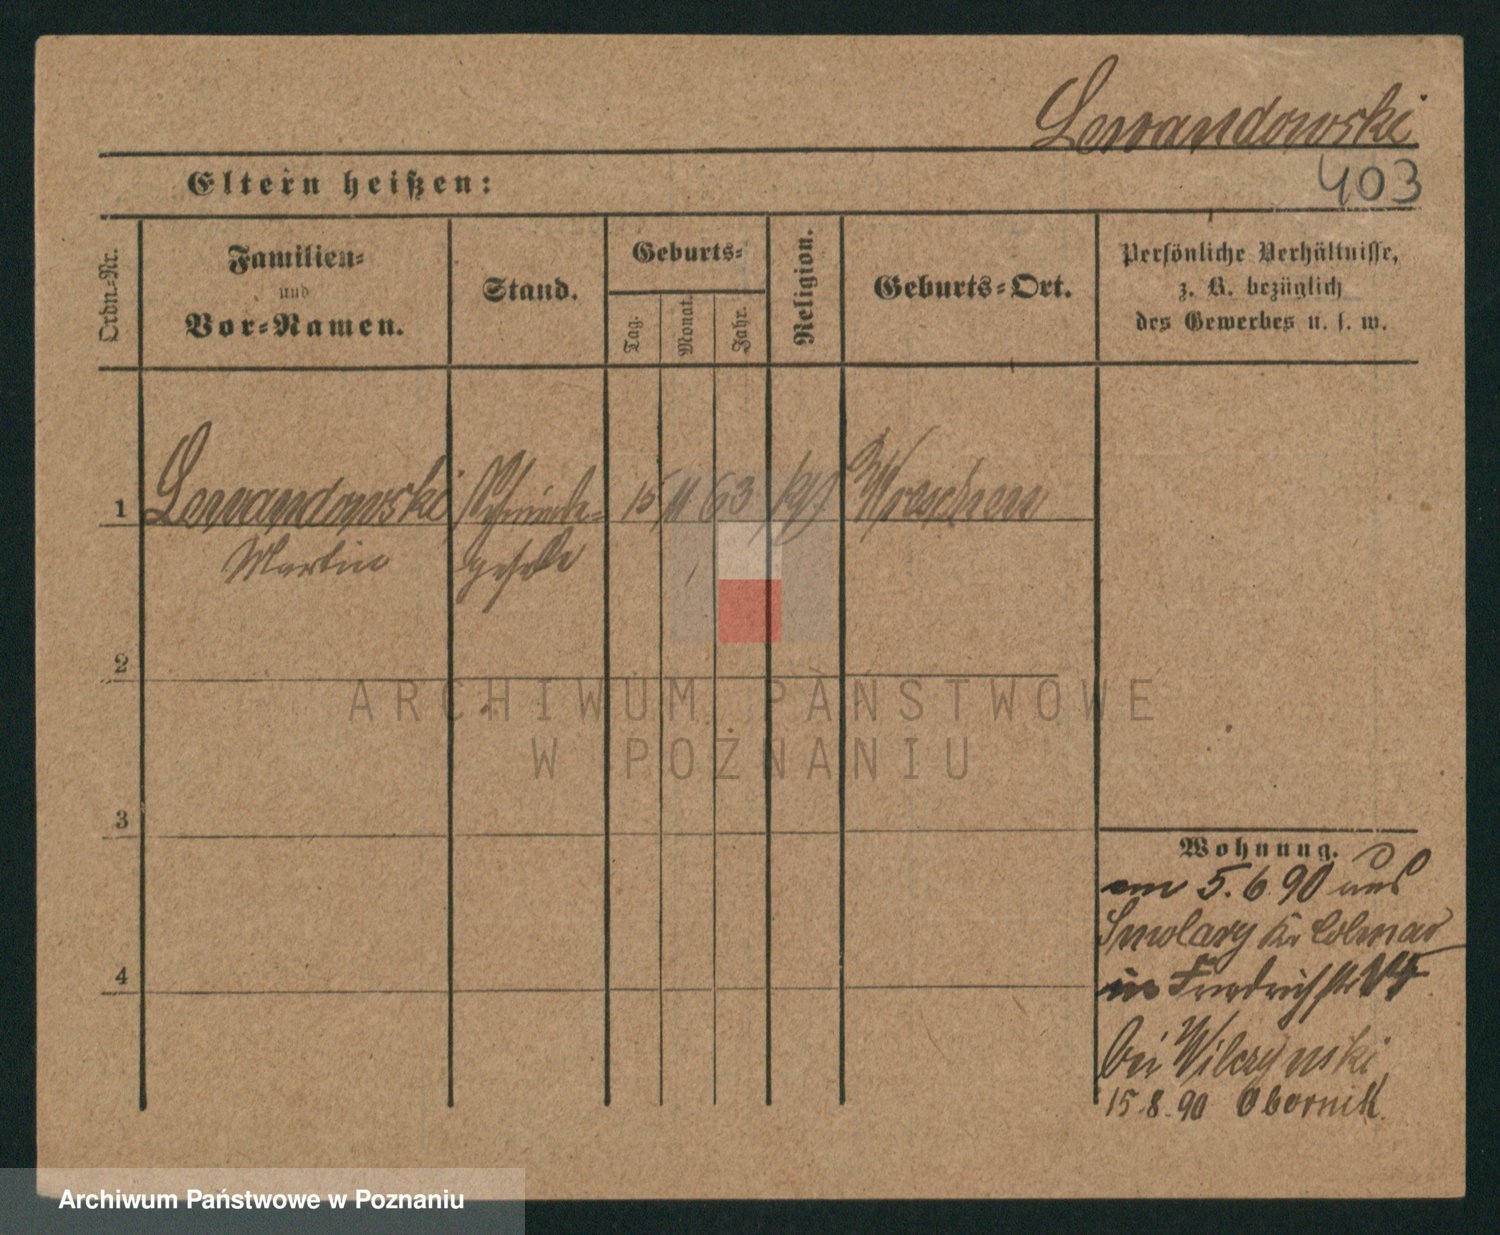 Lewandowski
403
Eltern heißen:
Ordn.-Nr.
Familien-
und
Vor-Namen.
Stand.
Geburts-
Tag.
Monat.
Jahr.
Religion.
Geburts-Ort.
Persönliche Verhältnisse,
z. B. bezüglich
des Gewerbes u. s. w.
1 Lewandowski Schmiede- 15 11 63 kth Wreschen
Martin geselle
2
3
4
Wohnung.
am 5.6.90 aus
Smolary Kr Colmar
in Friedrichstr
bei Wilczynski
15.8.90 Obornik.
ARCHIWUM PAŃSTWOWE
W POZNANIU
Archiwum Państwowe w Poznaniu